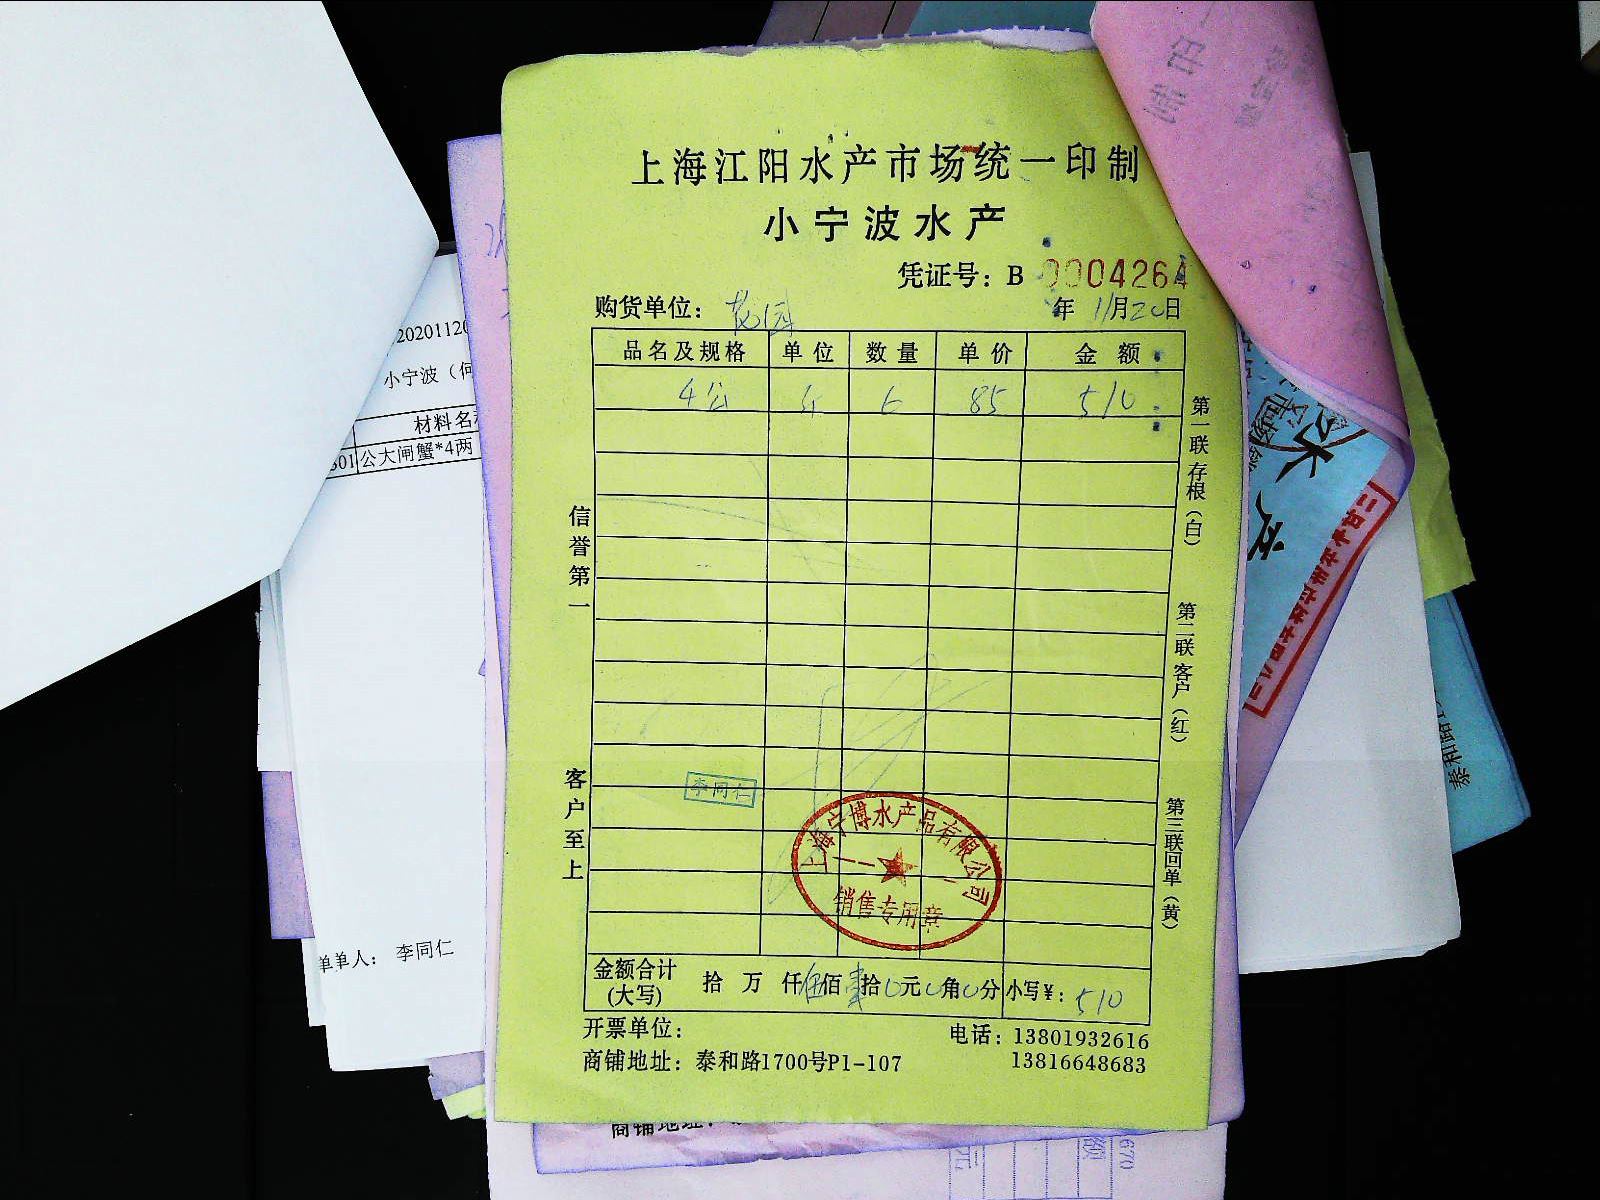 上海江阳水产市场统一印制
小宁波水产
凭证号：B 0004264
购货单位： 花园 年 11月20日
品名及规格 单位 数量 单价 金额
4公 6 85 510
第一联存根（白）
第二联客户（红）
第三联回单（黄）
信誉第一
客户至上
李同仁
上海宁博水产品有限公司
销售专用章
金额合计 拾 万 仟 伍佰 壹拾 0元 0角 0分 小写￥：510
(大写)
开票单位： 电话：13801932616
商铺地址：泰和路1700号P1-107 13816648683
20201120
小宁波（何
材料名
301 公大闸蟹*4两
单单人： 李同仁
水产
泰和路
商铺地址：
670